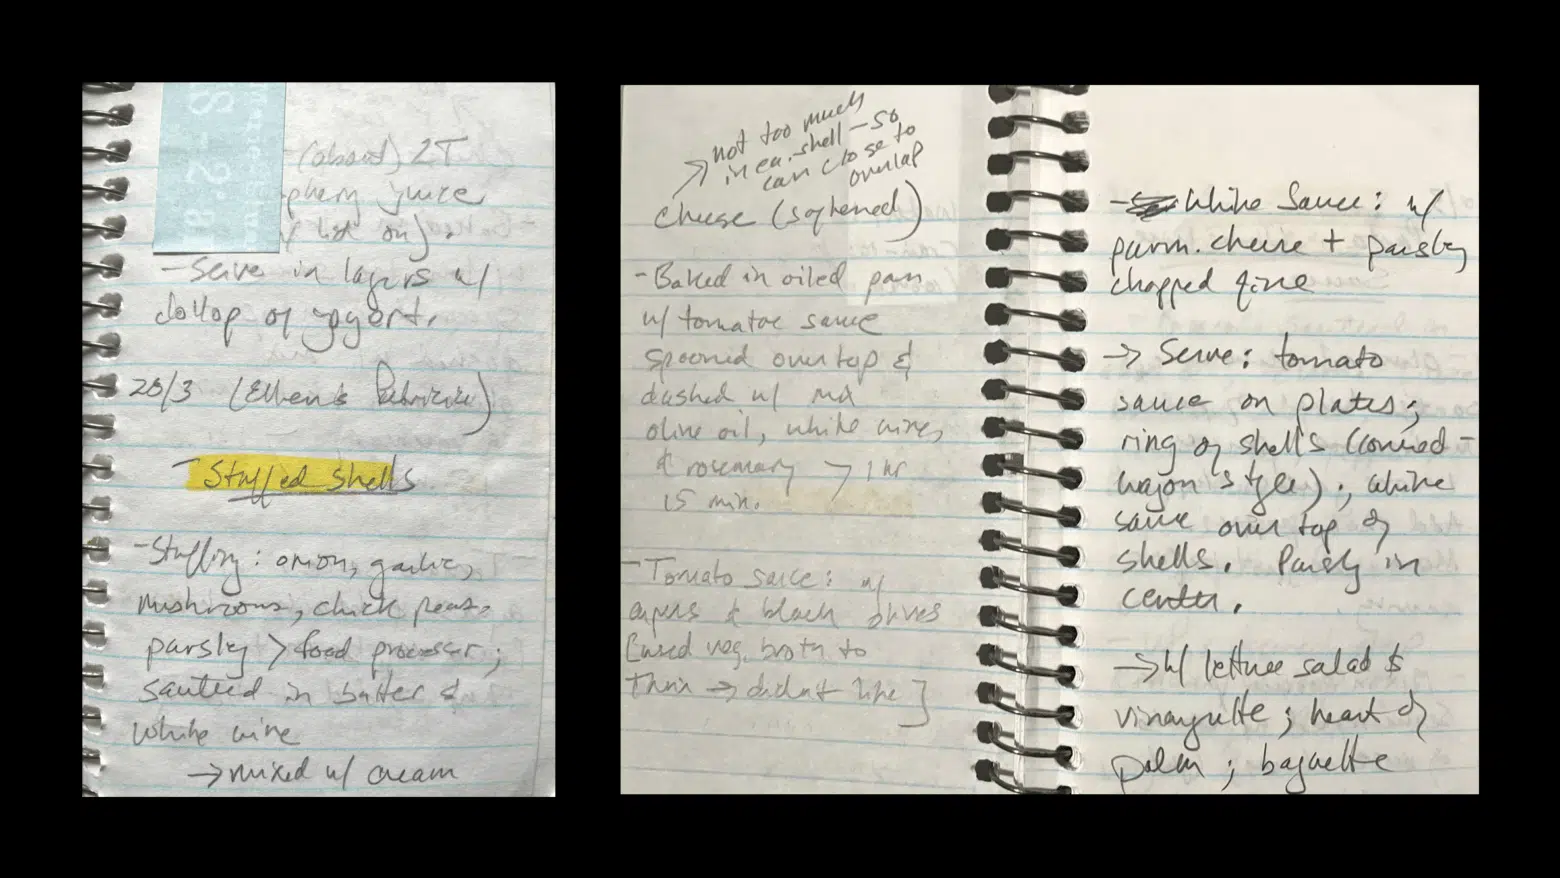 (about) 2T
juice
list on).
- Serve in layers w/
dollop of yogort.
28/3 (Ellen's
- Stuffed Shells
- Stuffing: onion, garlic,
mushrooms, chick peas,
parsley > food processer;
sauteed in butter &
white wine
→ mixed w/ cream
not too much
in ea. shell - so
can close to
overlap
cheese (softened)
- Baked in oiled pan
w/ tomatoe sauce
spooned over top &
dashed w/ mix
olive oil, white wine,
& rosemary > 1 hr
15 min.
- Tomato sauce: w/
capers & black olives
[used veg. broth to
thin → didn't like]
- White Sauce: w/
parm. cheese + parsley
chopped fine
→ Serve: tomato
sauce on plates;
ring of shells (covered-
wagon style); white
sauce over top of
shells. Parsley in
center.
→ w/ lettuce salad &
vinaigrette; heart of
palm; baguette